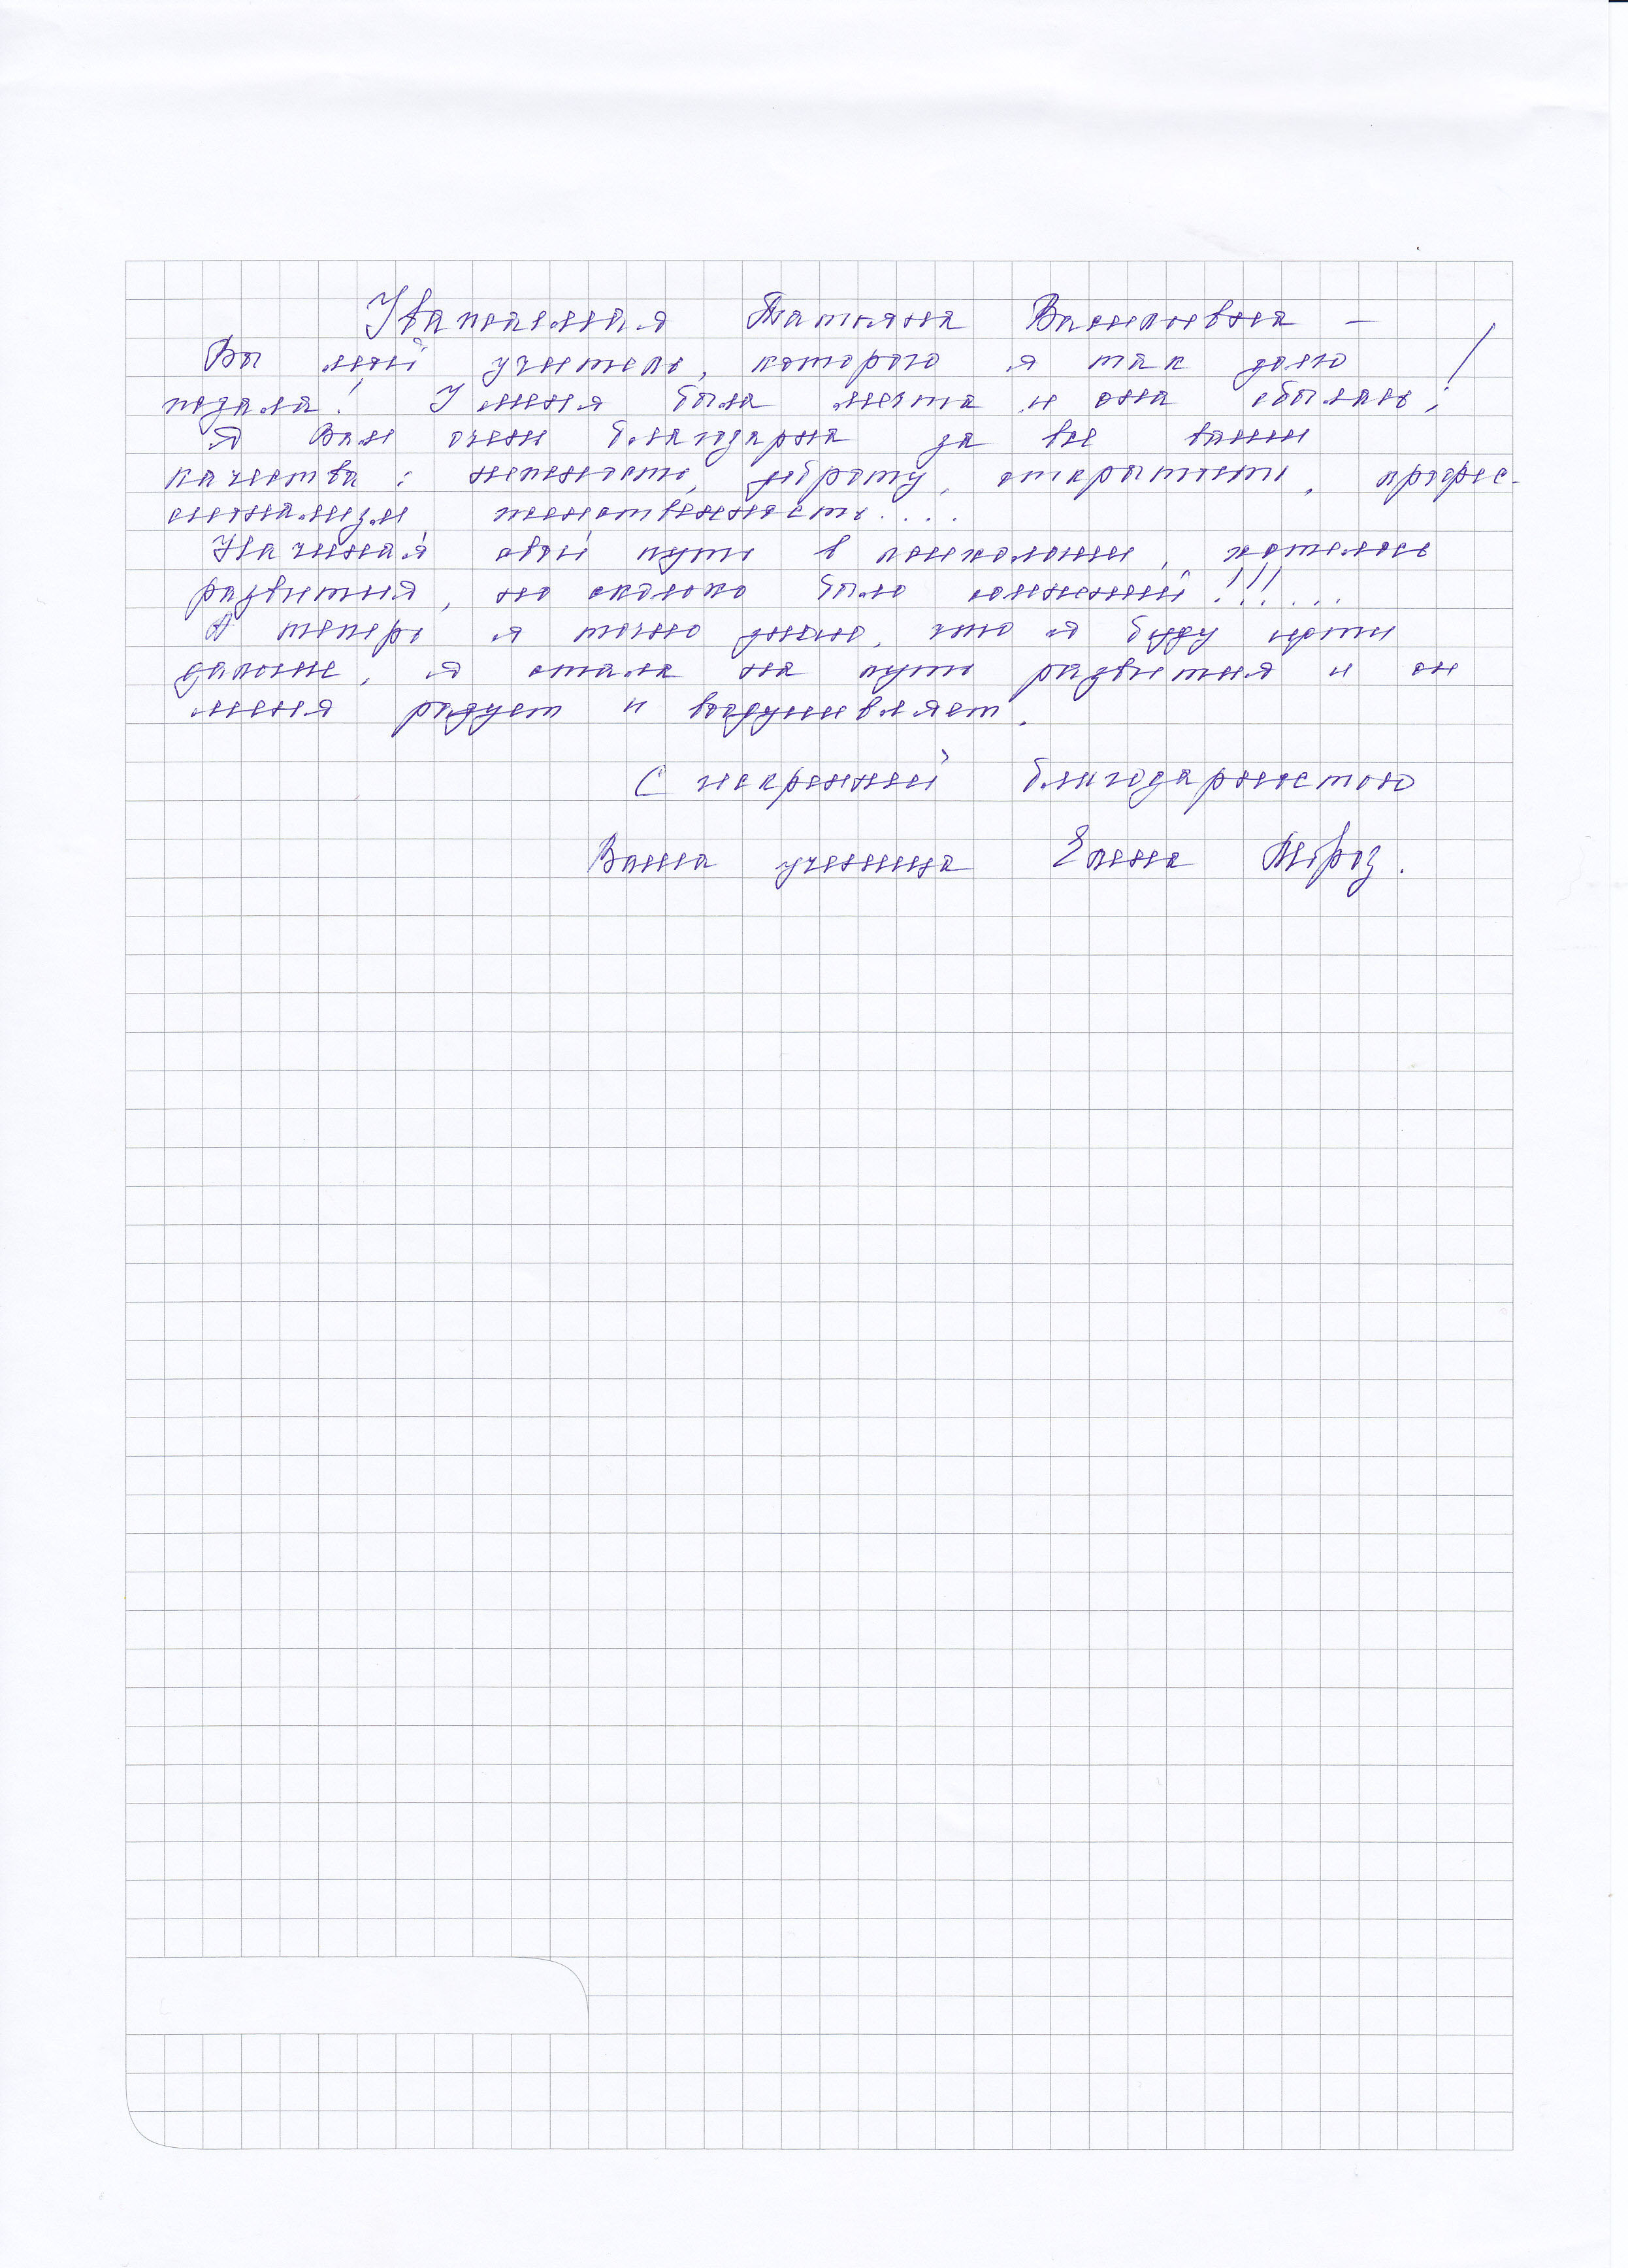 Уважаемая Татьяна Васильевна –
Вы мой учитель, которого я так долго
искала! У меня была мечта и она сбылась!
Я Вам очень благодарна за все ваши
качества: нежность, доброту, открытость, профес-
сионализм, женственность....
Начиная свой путь в психологии, хотелось
развития, но сколько было сомнений!!!...
А теперь я точно знаю, что я буду идти
дальше, я стала на путь развития и он
меня радует и воодушевляет.
С искренней благодарностью
Ваша ученица Елена Мороз.